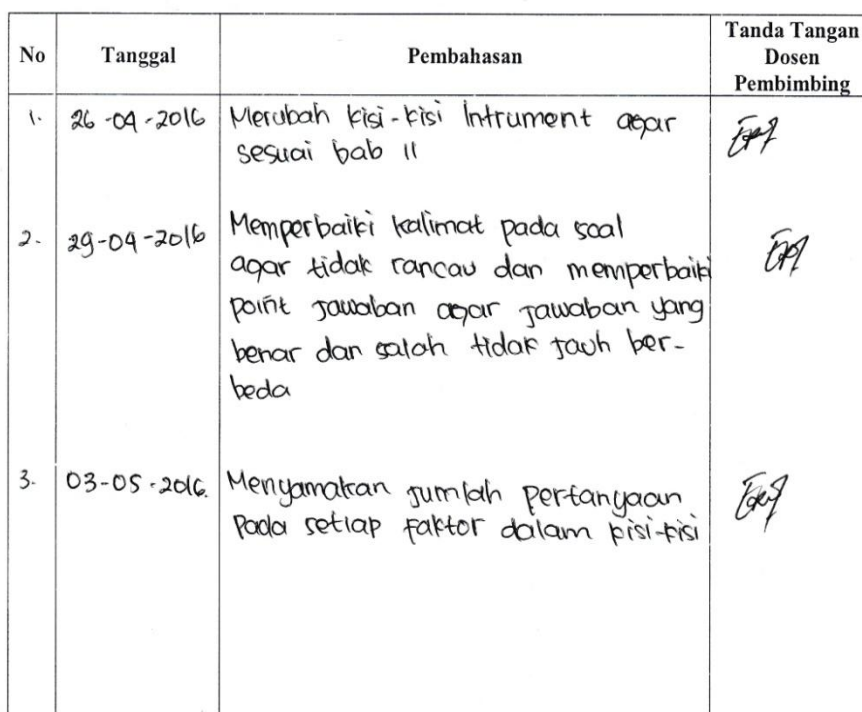 No Tanggal Pembahasan Tanda Tangan
Dosen
Pembimbing
1. 26-04-2016 Merubah kisi-kisi Intrument agar
sesuai bab II
2. 29-04-2016 Memperbaiki kalimat pada soal
agar tidak rancau dan memperbaiki
point jawaban agar jawaban yang
benar dan salah tidak jauh ber-
beda
3. 03-05-2016. Menyamakan jumlah pertanyaan
pada setiap faktor dalam kisi-kisi